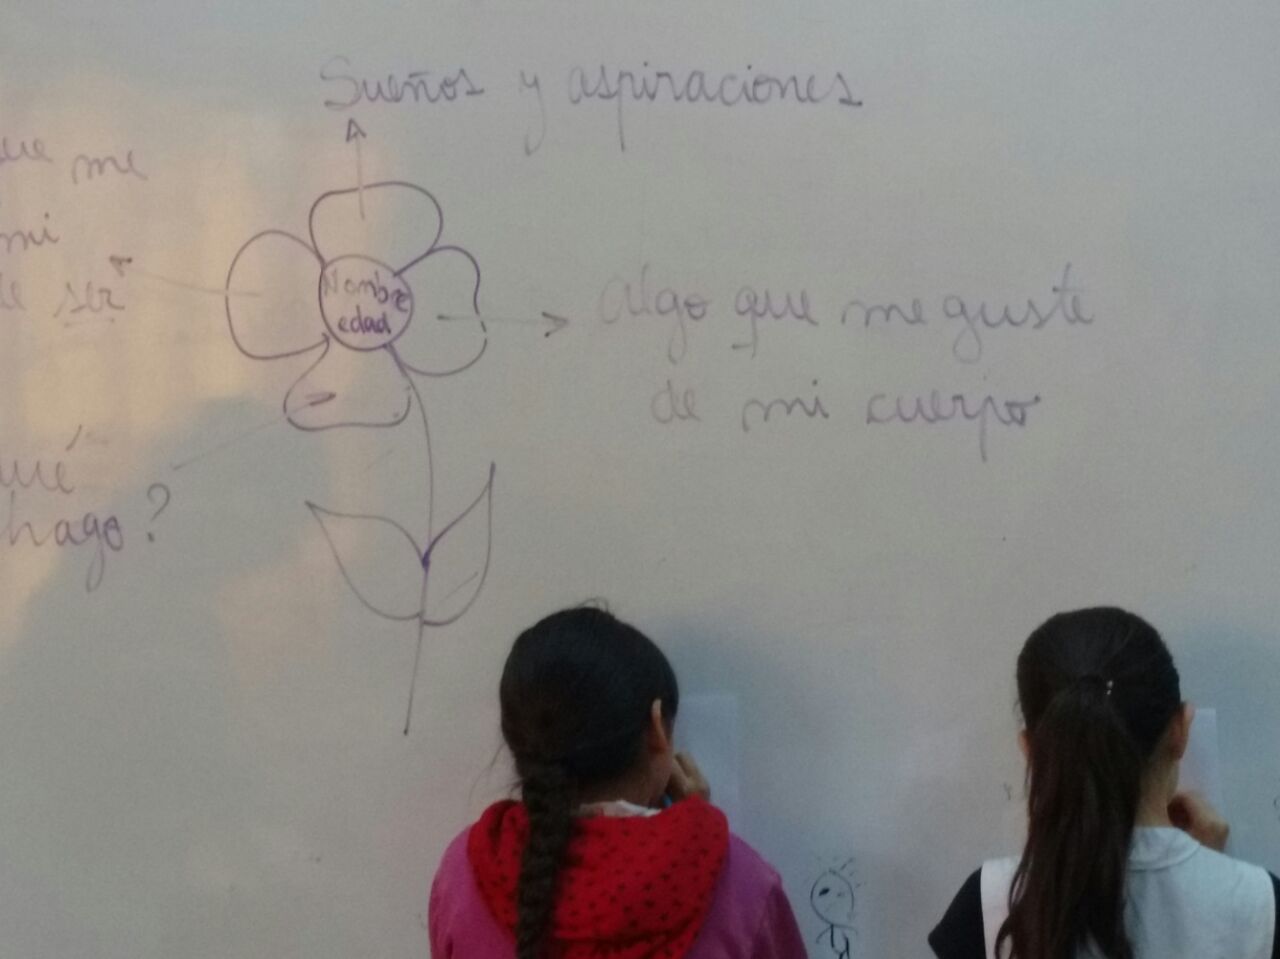 Sueños y aspiraciones
me
mi
ser
Nombre
edad
Algo que me guste
de mi cuerpo
hago?